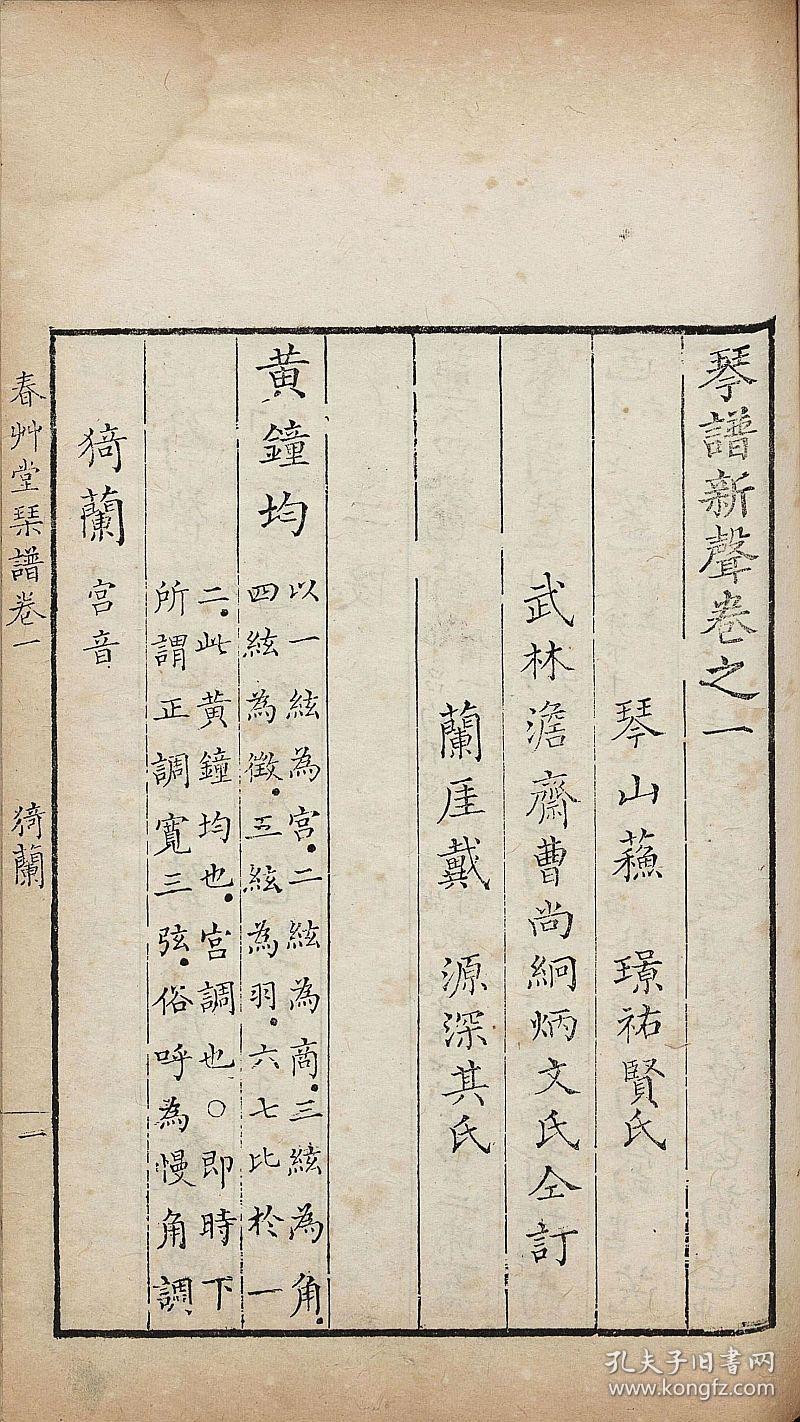 琴譜新聲卷之一
琴山蘓　璟祐賢氏
武林澹齋曹尚絅炳文氏仝訂
蘭厓戴　源深其氏
黃鐘均
以一絃為宮．二絃為商．三絃為角．
四絃為徵．五絃為羽．六七比於一
二．此黃鐘均也．宮調也○即時下
所謂正調寬三弦．俗呼為慢角調
猗蘭 宮音
春艸堂琹譜卷一　猗蘭　一
孔夫子旧书网
www.kongfz.com